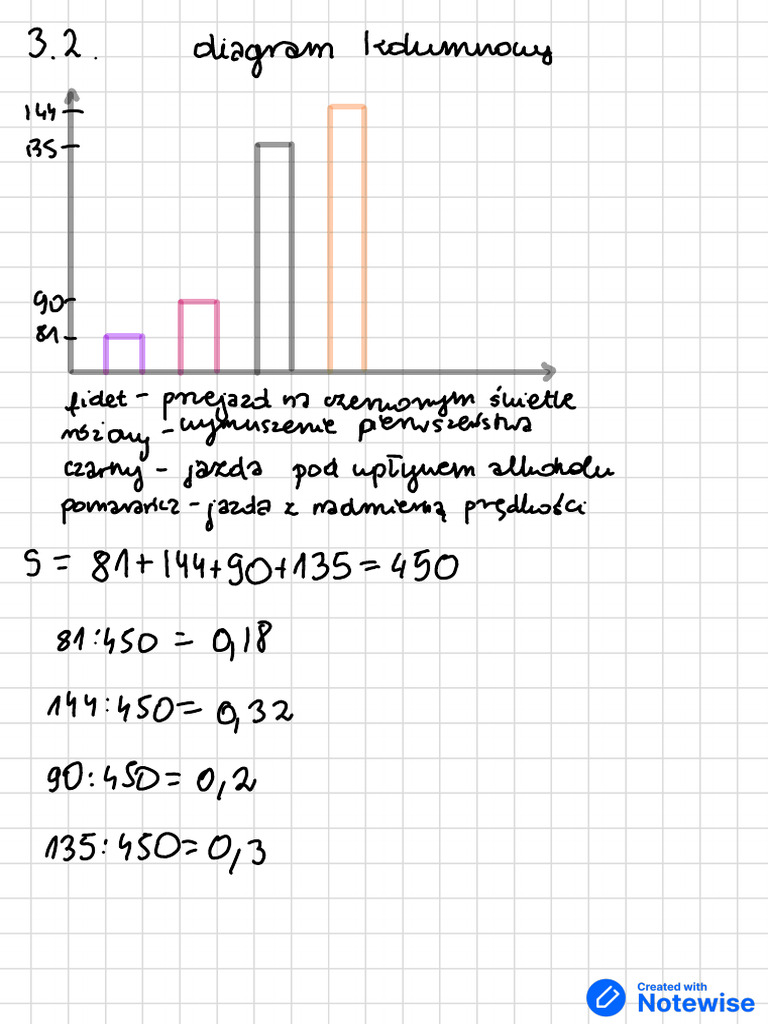 3.2. diagram kolumnowy
144
135
90
81
fiolet - przejazd na czerwonym świetle
różowy - wymuszenie pierwszeństwa
czarny - jazda pod wpływem alkoholu
pomarańcz - jazda z nadmierną prędkości
S = 81+144+90+135=450
81:450 = 0,18
144:450= 0,32
90:450= 0,2
135:450=0,3
Created with
Notewise